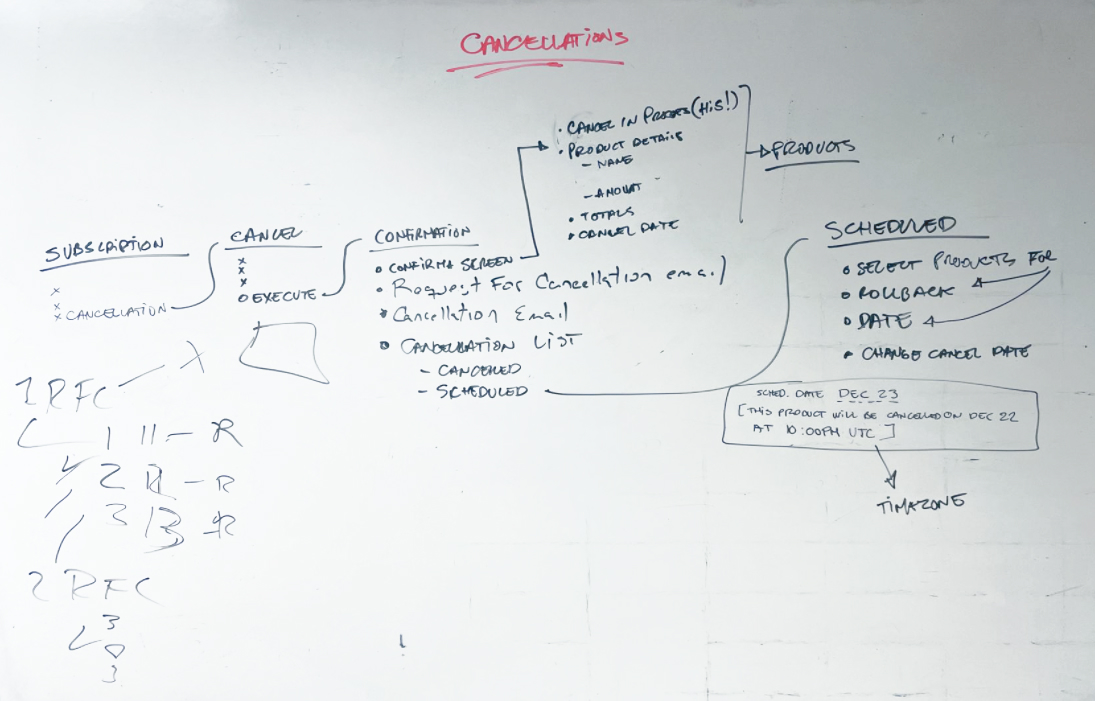 CANCELLATIONS
SUBSCRIPTION
x
x
x CANCELLATION
CANCEL
x
x
x
EXECUTE
CONFIRMATION
• CONFIRMA SCREEN
• Request For Cancellation email
• Cancellation Email
• CANCELLATION LIST
- CANCELLED
- SCHEDULED
• CANCEL IN (His!)
• PRODUCT DETAILS
- NAME
- AMOUNT
• TOTALS
• CANCEL DATE
PRODUCTS
SCHEDULED
• SELECT PRODUCTS FOR
• ROLLBACK
• DATE
• CHANGE CANCEL DATE
SCHED. DATE DEC 23
[THIS PRODUCT WILL BE CANCELLED ON DEC 22
AT 10:00PM UTC]
TIMAZONE
1 RFC
1 11 - R
2 - R
3 13 - R
2 RFC
3
3